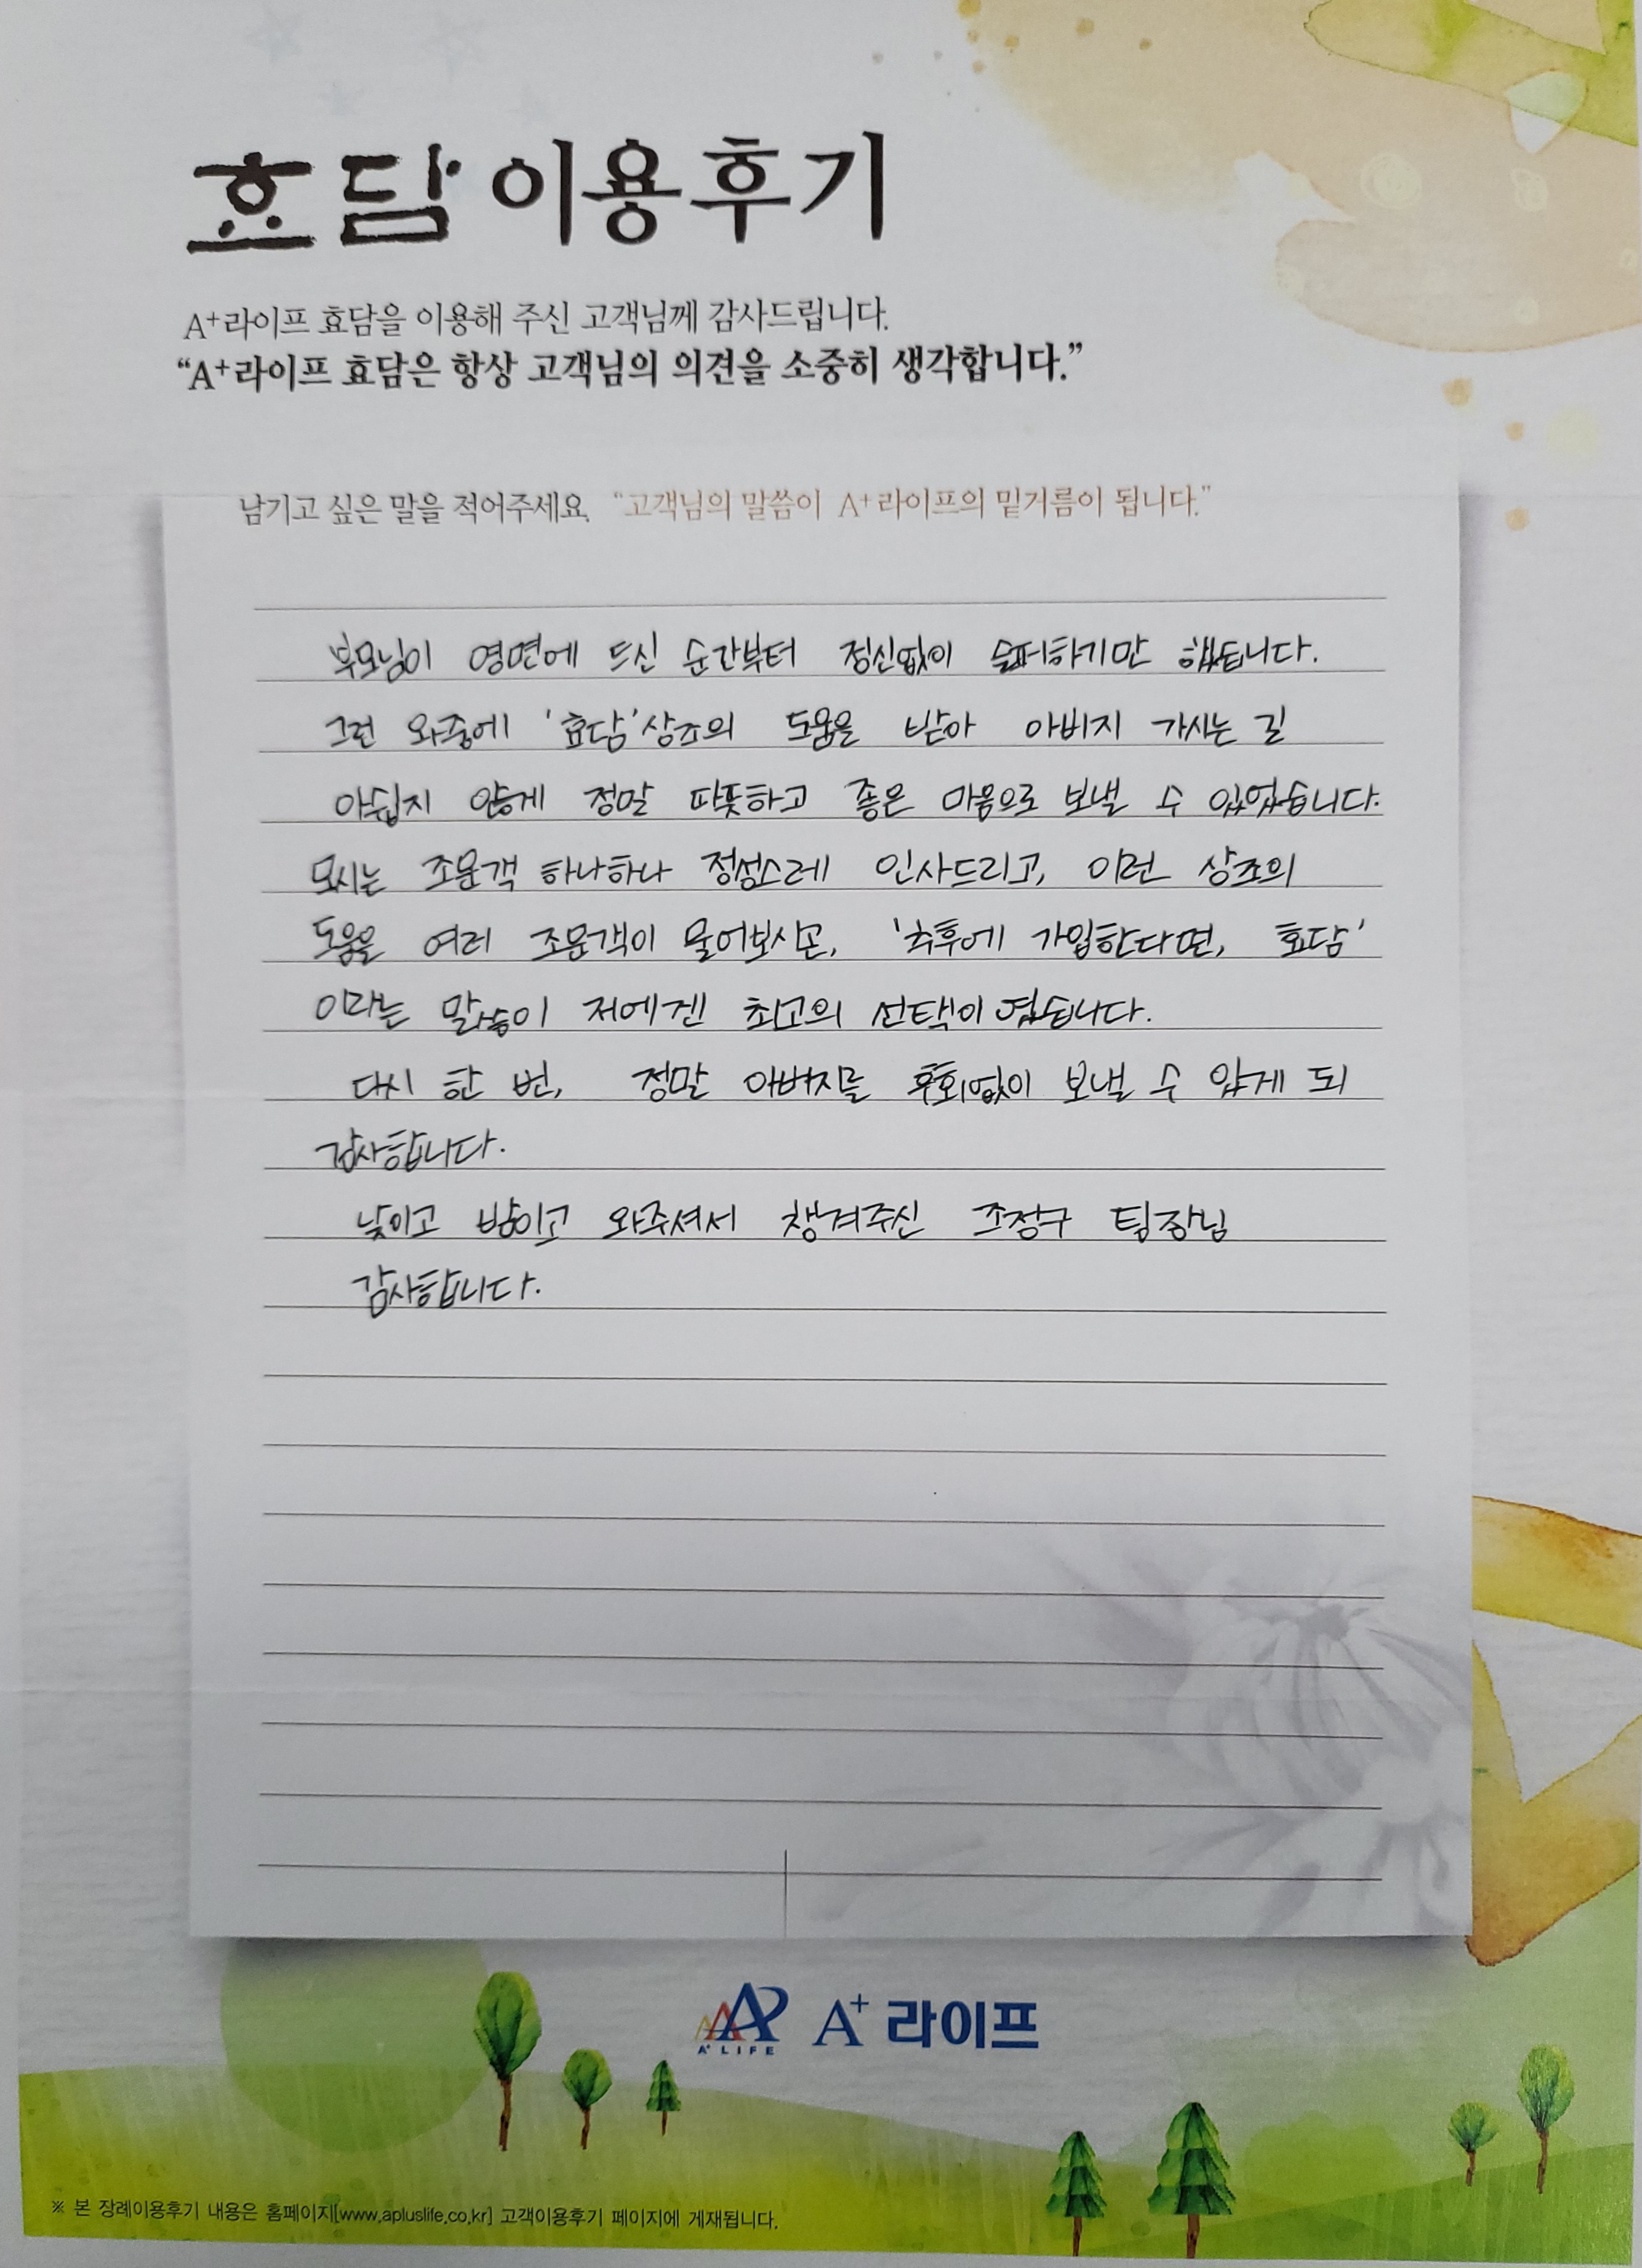 효담 이용후기
A+라이프 효담을 이용해 주신 고객님께 감사드립니다.
“A+라이프 효담은 항상 고객님의 의견을 소중히 생각합니다.”
남기고 싶은 말을 적어주세요. “고객님의 말씀이 A+라이프의 밑거름이 됩니다.”
부모님이 영면에 드신 순간부터 정신없이 슬퍼하기만 했습니다.
그런 와중에 '효담'상조의 도움을 받아 아버지 가시는 길
아쉽지 않게 정말 따뜻하고 좋은 마음으로 보낼 수 있었습니다.
모시는 조문객 하나하나 정성스레 인사드리고, 이런 상조의
도움을 여러 조문객이 물어보시곤, '추후에 가입한다면, 효담'
이라는 말씀이 저에겐 최고의 선택이였습니다.
다시 한 번, 정말 아버지를 후회없이 보낼 수 있게 되
감사합니다.
낮이고 밤이고 와주셔서 챙겨주신 조정구 팀장님
감사합니다.
A+ LIFE A+ 라이프
※ 본 장례이용후기 내용은 홈페이지[www.apluslife.co.kr] 고객이용후기 페이지에 게재됩니다.